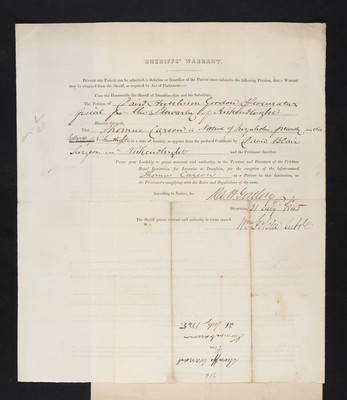 SHERIFFS' WARRANT.
Before any Patient can be admitted, a Relation or Guardian of the Patient must subscribe the following Petition, that a Warrant
may be obtained from the Sheriff, as required by Act of Parliament:—
Unto the Honourable the Sheriff of Dumfries-shire and his Substitute,
The Petition of David Hutchison Gordon Procurator
fiscal for the Stewartry of Kirkcudbright
Humbly Sheweth,
That Thomas Curson a Native of
is in a state of Lunacy, as appears from the prefixed Certificate by David Blair
Surgeon in Kirkcudbright and the Petitioner therefore
Prays your Lordship to grant warrant and authority, to the Trustees and Directors of the Crichton
Royal Institution for Lunatics at Dumfries, for the reception of the before-named
Thomas Curson as a Patient in that Institution, on
the Petitioner's complying with the Rules and Regulations of the same.
According to Justice, &c.
Gordon
Dumfries, 31 July 1845
The Sheriff grants warrant and authority in terms craved.
Subt
Sheriffs Warrant
for
Thomas Curson
31 July 1845